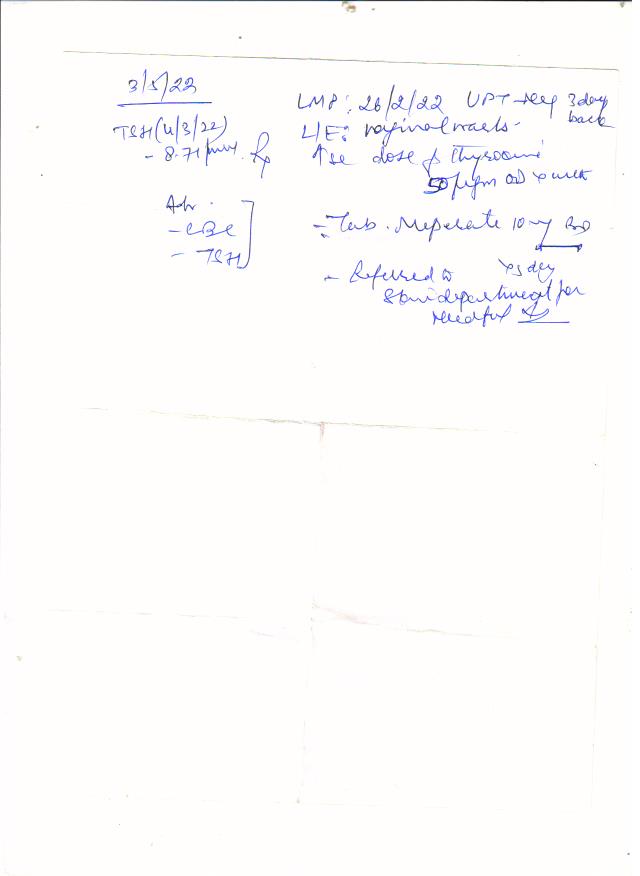 3/5/22
LMP: 26/2/22 UPT → neg 3 day back
TSH (4/3/22)
- 8.71
L/E: vaginal warts.
Rx
↑se dose of Thyroxine
50 µgm OD x
Adv.
- CBC
- TSH
- Tab. Meperate 10 mg BD
x 5 day
- Referred to
Skin department for
needful